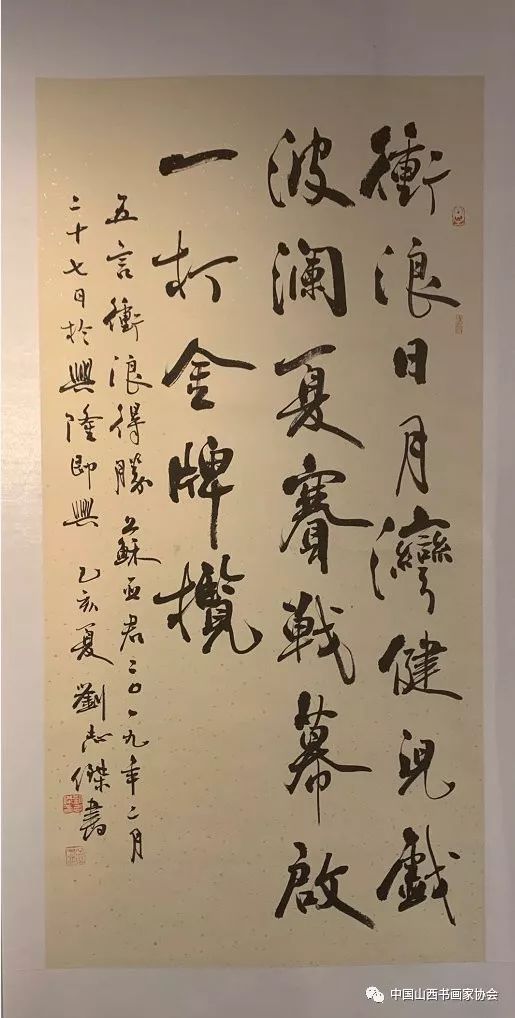 衝浪日月灣健児戲
波澜夏賽戦幕啟
一打金牌攬
五言衝浪得勝 蘇亚君二〇一九年二月
二十七日於興隆即興 乙亥夏 劉志傑書
中国山西书画家协会